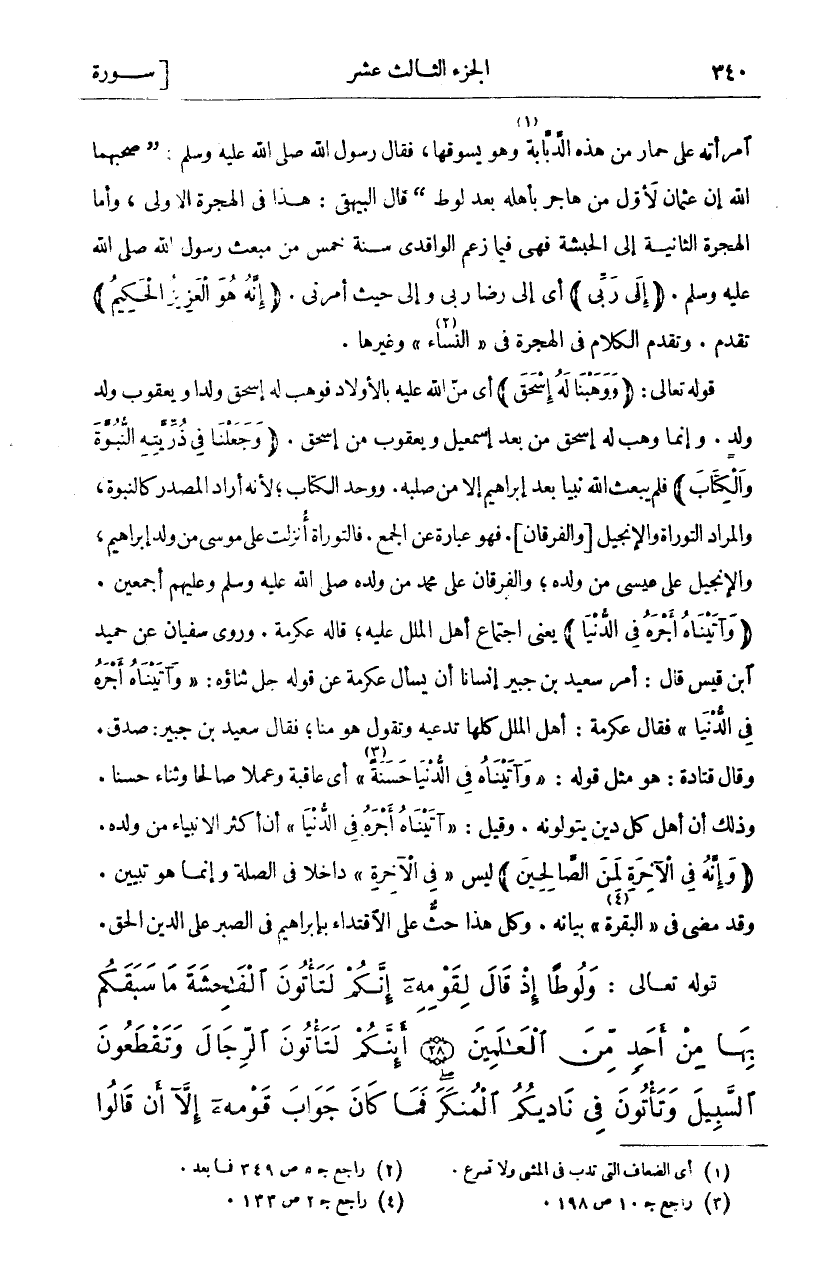 ٣٤٠ الجزء الثالث عشر [ ســورة
(١)
آمرأته على حمار من هذه الدَّبّابة وهو يسوقها، فقال رسول الله صلى الله عليه وسلم : ” صحبهما
الله إن عثمان لَأوّل من هاجر بأهله بعد لوط “ قال البيهقى : هـذا فى الهجرة الاولى ، وأما
الهجرة الثانيـة إلى الحبشة فهى فيما زعم الواقدى سـنة خمس من مبعث رسول الله صلى الله
عليه وسلم . ﴿ إِلَى رَبِّى ﴾ أى إلى رضا ربى و إلى حيث أمرنى . ﴿ إِنَّهُ هُوَ الْعَزِيزُ الْحَكِيمُ ﴾
(٢)
تقدم . وتقدم الكلام فى الهجرة فى « النساء » وغيرها .
قوله تعالى : ﴿ وَوَهَبْنَا لَهُ إِسْحَقَ ﴾ أى منّ الله عليه بالأولاد فوهب له إسحق ولدا و يعقوب ولد
ولدٍ . و إنما وهب له إسحق من بعد إسمعيل و يعقوب من إسحق . ﴿ وَجَعَلْنَا فِى ذُرِّيَّتِهِ النُّبُوَّةَ
وَالْكِتَابَ ﴾ فلم يبعث الله نبيا بعد إبراهيم إلا من صلبه. ووحد الكتاب ؛ لأنه أراد المصدر كالنبوة ،
والمراد التوراة والإنجيل [والفرقان]. فهو عبارة عن الجمع . فالتوراة أُنزلت على موسى من ولد إبراهيم ،
والإنجيل على عيسى من ولده ؛ والفرقان على محمد من ولده صلى الله عليه وسلم وعليهم أجمعين .
﴿ وَآتَيْنَاهُ أَجْرَهُ فِى الدُّنْيَا ﴾ يعنى اجتماع أهل الملل عليه ؛ قاله عكرمة . وروى سفيان عن حميد
آبن قيس قال : أمر سعيد بن جبير إنسانا أن يسأل عكرمة عن قوله جل ثناؤه : « وَآتَيْنَاهُ أَجْرَهُ
فِى الدُّنْيَا » فقال عكرمة : أهل الملل كلها تدعيه وتقول هو منا ؛ فقال سعيد بن جبير : صدق .
(٣)
وقال قتادة : هو مثل قوله : « وَآتَيْنَاهُ فِى الدُّنْيَا حَسَنَةً » أى عاقبة وعملا صالحا وثناء حسنا .
وذلك أن أهل كل دين يتولونه . وقيل : « آتَيْنَاهُ أَجْرَهُ فِى الدُّنْيَا » أن أكثر الانبياء من ولده .
﴿ وَإِنَّهُ فِى الْآخِرَةِ لَمِنَ الصَّالِحِينَ ﴾ ليس « فِى الْآخِرَةِ » داخلا فى الصلة و إنما هو تبيين .
(٤)
وقد مضى فى « البقرة » بيانه . وكل هذا حثٌّ على الآقتداء بإبراهيم فى الصبر على الدين الحق .
توله تعـالى : وَلُوطًا إِذْ قَالَ لِقَوْمِهِۦٓ إِنَّكُمْ لَتَأْتُونَ ٱلْفَـٰحِشَةَ مَا سَبَقَكُم
بِهَا مِنْ أَحَدٍ مِّنَ ٱلْعَـٰلَمِينَ ﴿٢٨﴾ أَئِنَّكُمْ لَتَأْتُونَ ٱلرِّجَالَ وَتَقْطَعُونَ
ٱلسَّبِيلَ وَتَأْتُونَ فِى نَادِيكُمُ ٱلْمُنكَرَ ۖ فَمَا كَانَ جَوَابَ قَوْمِهِۦٓ إِلَّآ أَن قَالُوا
(١) أى الضعاف التى تدب فى المشى ولا تسرع . (٢) راجع جـ ٥ ص ٣٤٩ فما بعد .
(٣) راجع جـ ١٠ ص ١٩٨ . (٤) راجع جـ ٢ ص ١٣٣ .